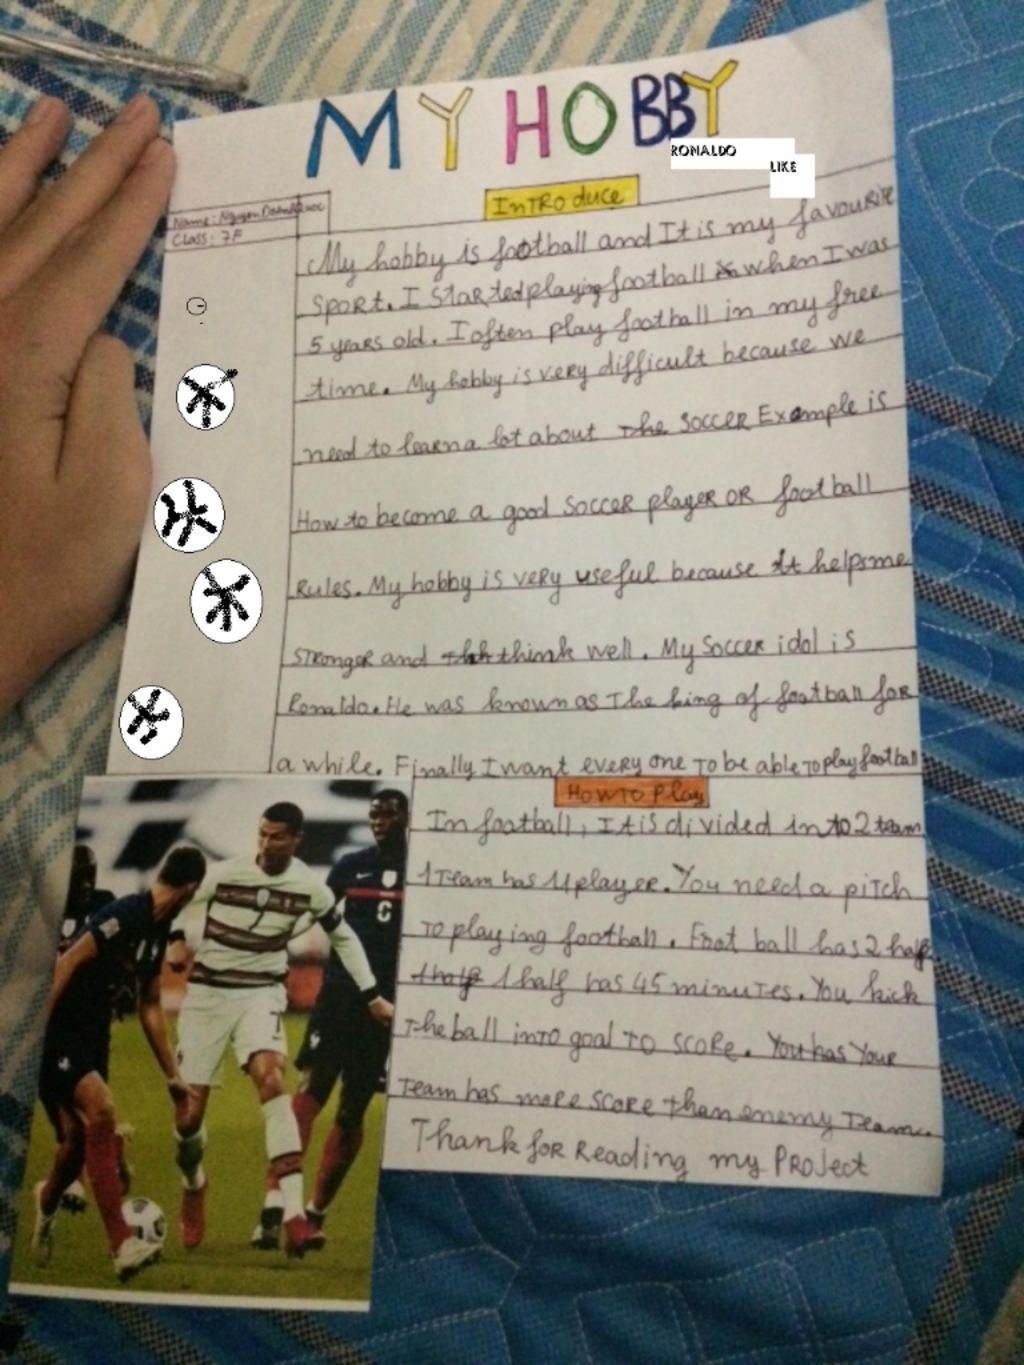 MY HOBBY
RONALDO
LIKE
InTRoduce
Name: Nguyen
Class: 7F
My hobby is football and It is my favourite
sport. I started playing football when I was
5 years old. I often play football in my free
time. My hobby is very difficult because we
need to learn a lot about the soccer Example is
How to become a good soccer player or football
Rules. My hobby is very useful because it helps me
stronger and think well. My soccer idol is
Ronaldo. He was known as the king of football for
a while. Finally I want every one to be able to play football
HOW TO Play
In football, It is divided in to 2 team
1 team has 11 player. You need a pitch
to playing football. Foot ball has 2 half
1 half has 45 minutes. You kick
the ball into goal to score. You has Your
team has more score than enemy team.
Thank for Reading my PROJect